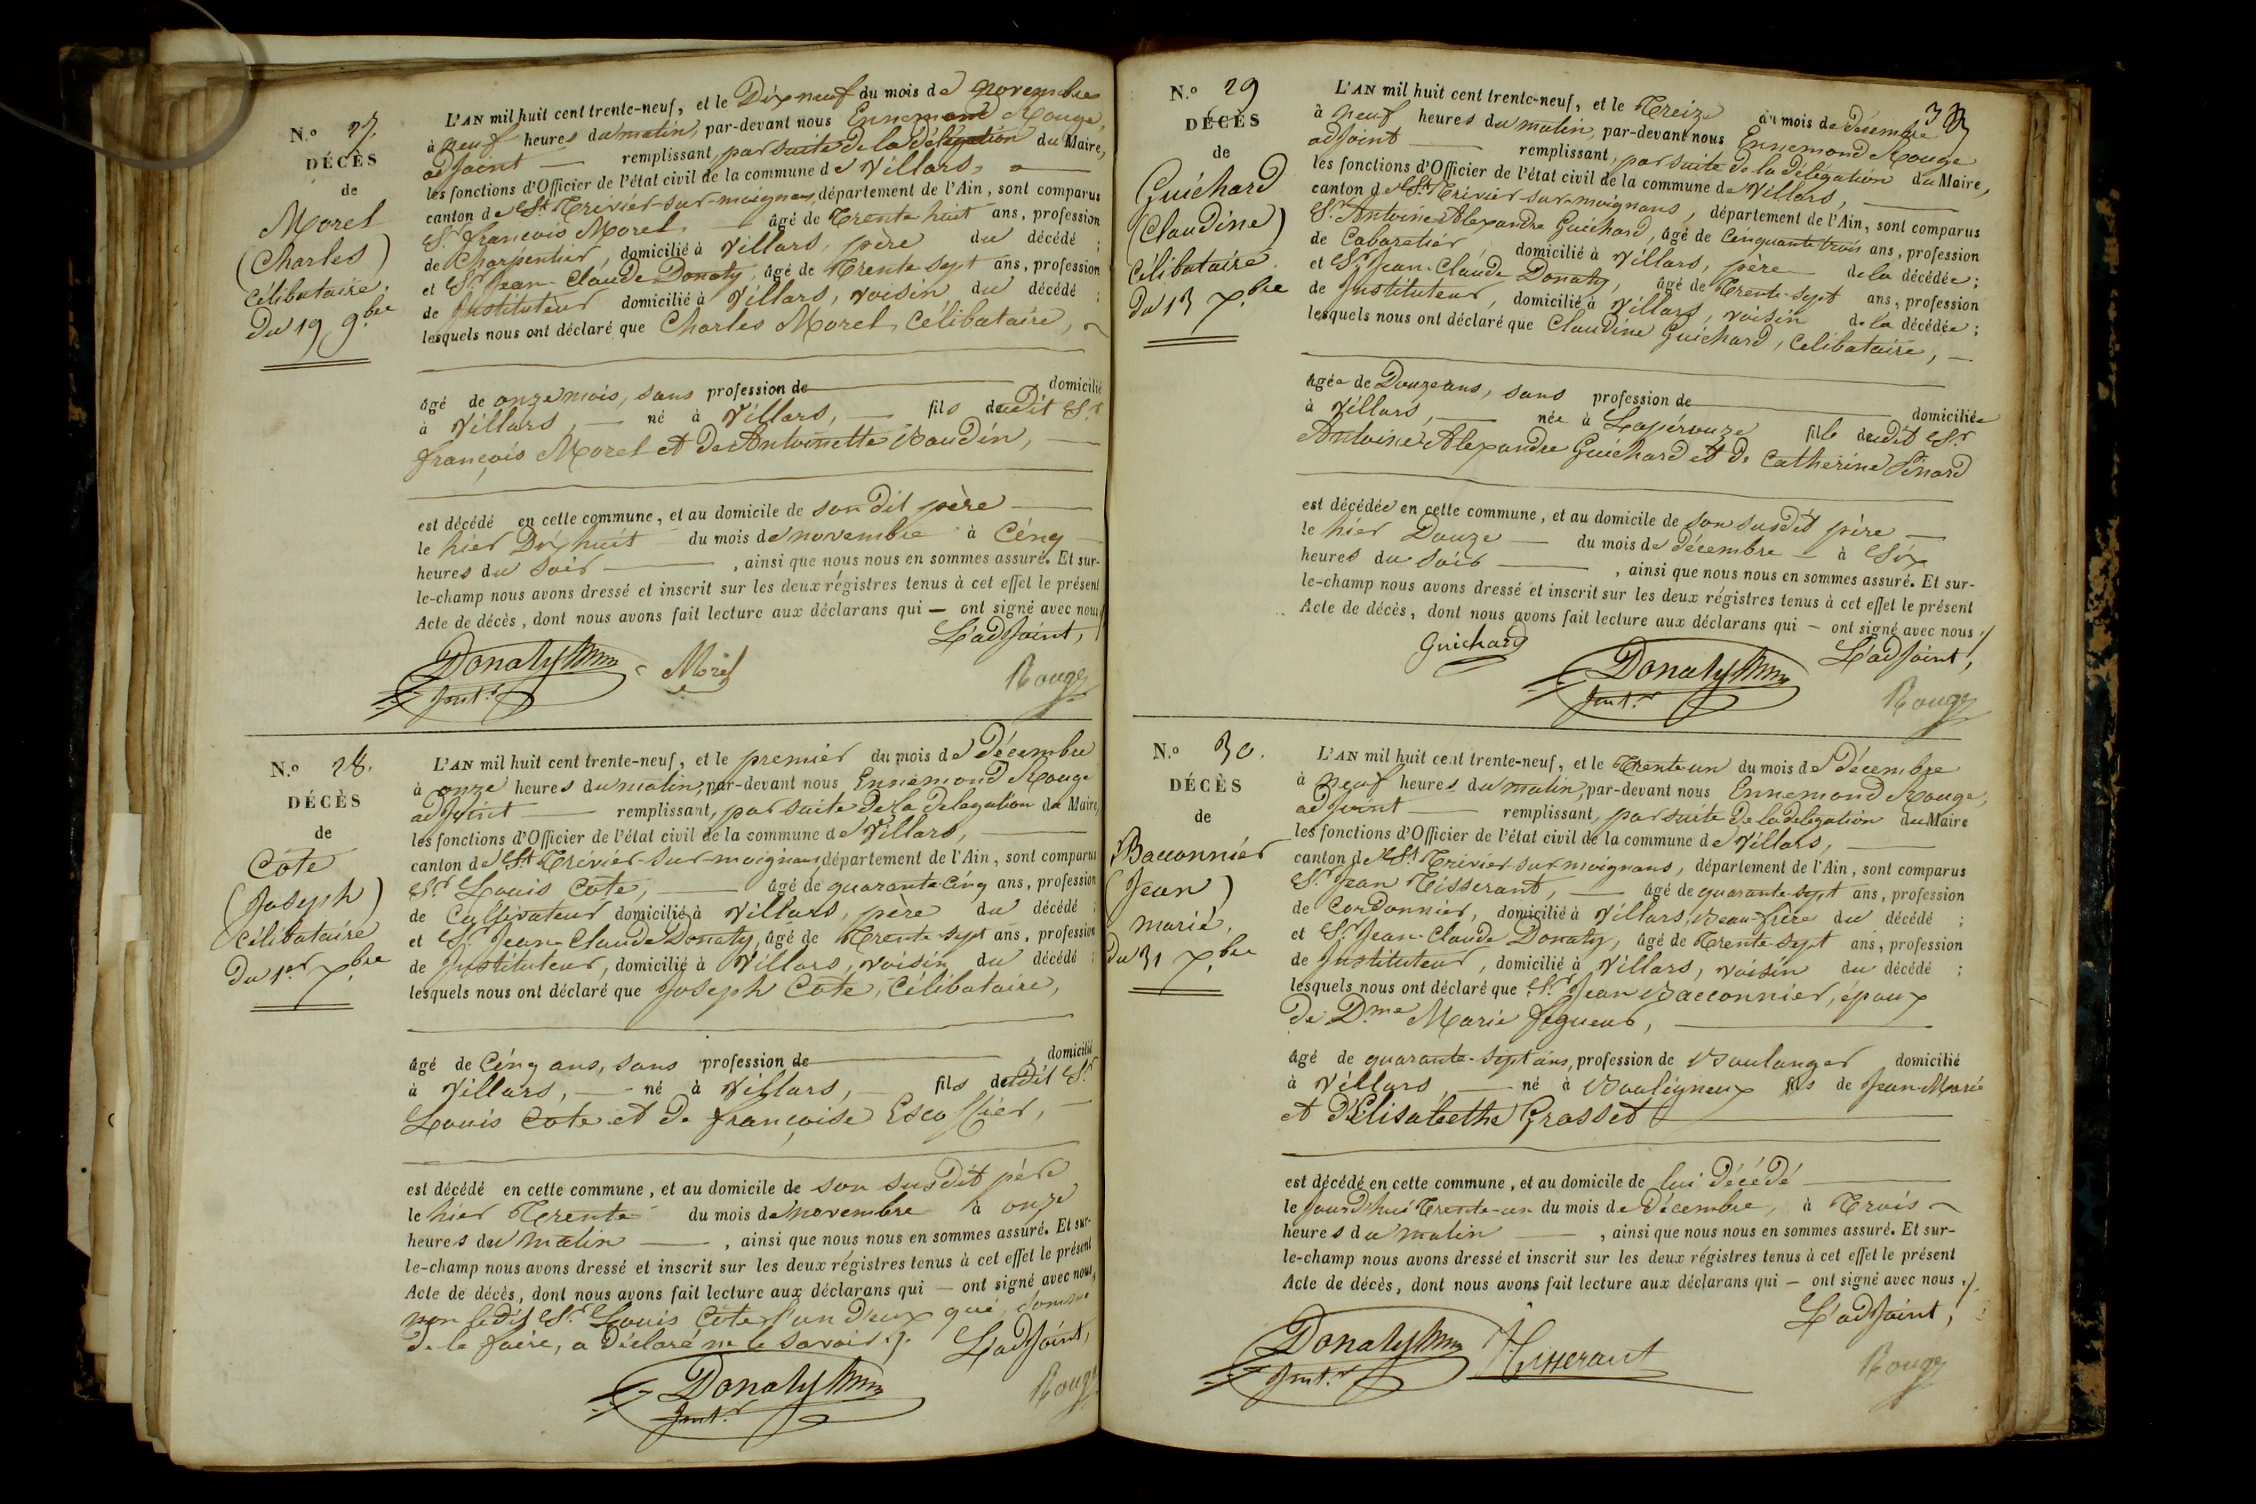 N.º 27.
DÉCÈS
de
Morel
(Charles)
célibataire.
Du 19 9.bre
L'AN mil huit cent trente-neuf, et le Dix neuf du mois de Novembre
à neuf heures du matin, par-devant nous Ennemond Rouge,
adjoint — remplissant, par suite de la délégation du Maire,
les fonctions d'Officier de l'état civil de la commune de Villars, —
canton de St Trivier-sur-moignans, département de l'Ain, sont comparus
Sr. françois Morel, — âgé de Trente huit ans, profession
de Charpentier, domicilié à Villars, père du décédé ;
et Sr. Jean-Claude Donaty, âgé de Trente-sept ans, profession
de Instituteur domicilié à Villars, voisin du décédé ;
lesquels nous ont déclaré que Charles Morel, célibataire, —
âgé de onze mois, sans profession de — domicilié
à Villars, — né à Villars, — fils dudit Sr.
françois Morel et de Antoinette Baudin, —
est décédé en cette commune, et au domicile de son dit père —
le hier Dix huit — du mois de novembre à Cinq —
heures du soir —, ainsi que nous nous en sommes assuré. Et sur-
le-champ nous avons dressé et inscrit sur les deux régistres tenus à cet effet le présent
Acte de décès, dont nous avons fait lecture aux déclarans qui — ont signé avec nous ./.
L'adjoint,
Donaty
Instr.
Morel
Rouge
N.º 28.
DÉCÈS
de
Côte
(Joseph)
célibataire
Du 1er Xbre
L'AN mil huit cent trente-neuf, et le premier du mois de Décembre
à onze heures du matin, par-devant nous Ennemond Rouge
adjoint — remplissant, par suite de la délégation du Maire,
les fonctions d'Officier de l'état civil de la commune de Villars, —
canton de St Trivier-sur-moignans, département de l'Ain, sont comparus
Sr. Louis Côte, — âgé de quarante cinq ans, profession
de Cultivateur domicilié à Villars, père du décédé ;
et Sr. Jean-Claude Donaty, âgé de Trente-sept ans, profession
de Instituteur, domicilié à Villars, voisin du décédé ;
lesquels nous ont déclaré que Joseph Côte, célibataire,
âgé de Cinq ans, sans profession de — domicilié
à Villars, — né à Villars, — fils dudit Sr.
Louis Cote et de françoise Escoffier, —
est décédé en cette commune, et au domicile de son susdit père
le hier Trente du mois de novembre à onze
heures du matin —, ainsi que nous nous en sommes assuré. Et sur-
le-champ nous avons dressé et inscrit sur les deux régistres tenus à cet effet le présent
Acte de décès, dont nous avons fait lecture aux déclarans qui — ont signé avec nous,
non ledit Sr. Louis Côte l'un d'eux qui, sommé
de le faire, a déclaré ne le savoir ./. L'adjoint,
Donaty
Instr.
Rouge
N.º 29
DÉCÈS
de
Guichard
(Claudine)
célibataire.
Du 13 Xbre
L'AN mil huit cent trente-neuf, et le Treize du mois de décembre
à neuf heures du matin, par-devant nous Ennemond Rouge
adjoint — remplissant, par suite de la délégation du Maire,
les fonctions d'Officier de l'état civil de la commune de Villars, —
canton de St Trivier-sur-moignans, département de l'Ain, sont comparus
Sr. Antoine Alexandre Guichard, âgé de Cinquante trois ans, profession
de Cabaretier, domicilié à Villars, père — de la décédée ;
et Sr. Jean-Claude Donaty, âgé de Trente-sept ans, profession
de Instituteur, domicilié à Villars, voisin de la décédée ;
lesquels nous ont déclaré que Claudine Guichard, célibataire, —
âgée de Douze ans, sans profession de — domiciliée
à Villars, — née à Lapérouze fille dudit Sr.
Antoine Alexandre Guichard et de Catherine Pinard
est décédée en cette commune, et au domicile de son susdit père —
le hier Douze — du mois de décembre — à Six
heures du soir —, ainsi que nous nous en sommes assuré. Et sur-
le-champ nous avons dressé et inscrit sur les deux régistres tenus à cet effet le présent
Acte de décès, dont nous avons fait lecture aux déclarans qui — ont signé avec nous ./.
L'adjoint,
Guichard
Donaty
Instr.
Rouge
N.º 30.
DÉCÈS
de
Bacconnier
(Jean)
marié,
Du 31 Xbre
L'AN mil huit cent trente-neuf, et le Trente un du mois de Décembre
à neuf heures du matin, par-devant nous Ennemond Rouge,
adjoint — remplissant, par suite de la délégation du Maire
les fonctions d'Officier de l'état civil de la commune de Villars, —
canton de St Trivier-sur-moignans, département de l'Ain, sont comparus
Sr. Jean Tisserant, — âgé de quarante-sept ans, profession
de Cordonnier, domicilié à Villars, Beau-frère du décédé ;
et Sr. Jean-Claude Donaty, âgé de Trente-sept ans, profession
de Instituteur, domicilié à Villars, voisin du décédé ;
lesquels nous ont déclaré que Sr. Jean Bacconnier, époux
de Dme Marie —
âgé de quarante-sept ans, profession de Boulanger domicilié
à Villars, — né à Bouligneux fils de Jean-Marie
et d'Elisabethe Grosset —
est décédé en cette commune, et au domicile de lui décédé —
le jourd'hui Trente-un du mois de Décembre, à Trois —
heures du matin —, ainsi que nous nous en sommes assuré. Et sur-
le-champ nous avons dressé et inscrit sur les deux régistres tenus à cet effet le présent
Acte de décès, dont nous avons fait lecture aux déclarans qui — ont signé avec nous ./.
L'adjoint,
Donaty
Instr.
Tisserant
Rouge